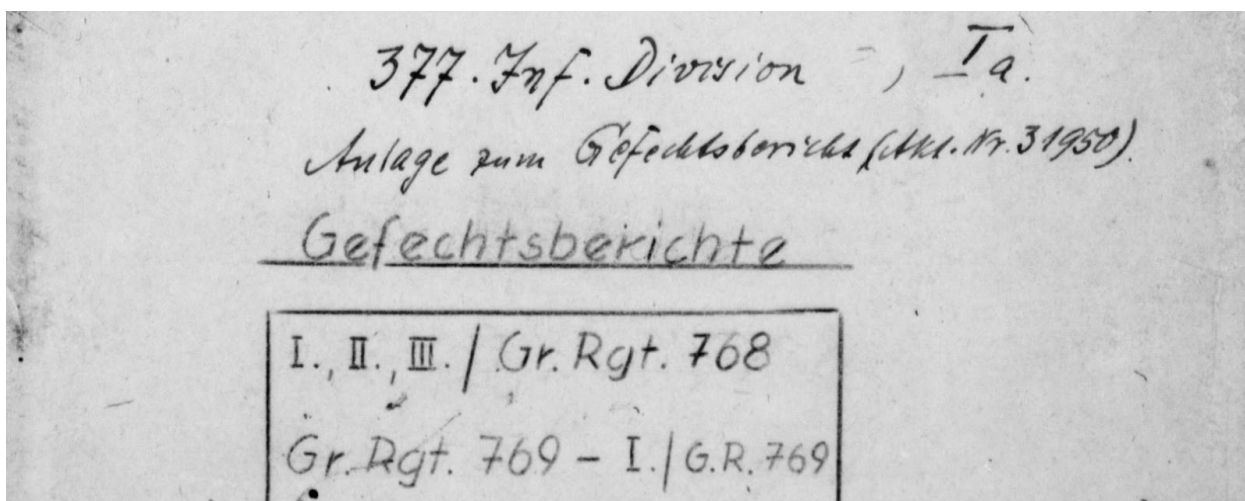 377. Inf. Division , Ia.
Anlage zum Gefechtsbericht (Akt. Nr. 31950).
Gefechtsberichte
I., II., III. / Gr. Rgt. 768
Gr. Rgt. 769 – I. / G.R. 769